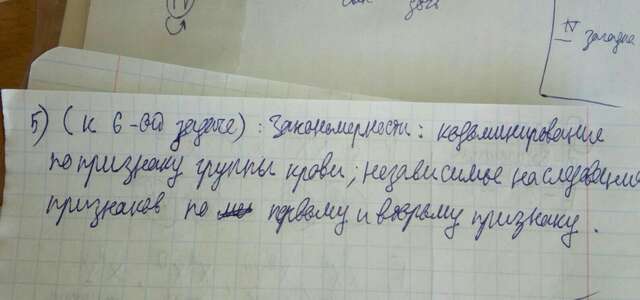 IV
IV загадка
5) (к 6-ой задаче): Закономерности: кодоминирование
по признаку группы крови; независимое наследование
признаков по первому и второму признаку.